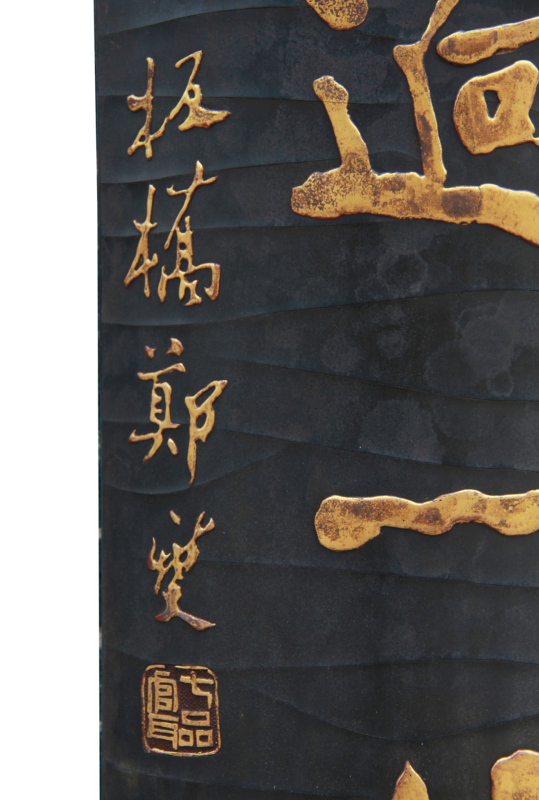 板橋鄭燮
七品官耳